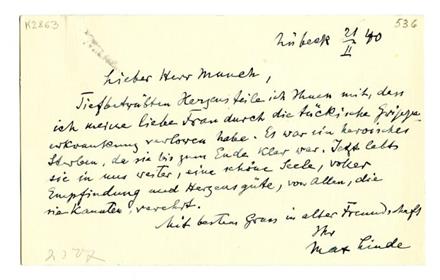 K2863
536
Lübeck 21/II 40
Lieber Herr Munch,
Tiefbetrübten Herzens teile ich Ihnen mit, dass
ich meine liebe Frau durch die tückische Grippe-
erkrankung verloren habe. Es war ein heroisches
Sterben, da sie bis zum Ende klar war. Jetzt lebt
sie in uns weiter, eine schöne Seele, voller
Empfindung und Herzensgüte, von Allen, die
sie kannten, verehrt.
Mit bestem Gruss in alter Freundschaft
Ihr
Max Linde